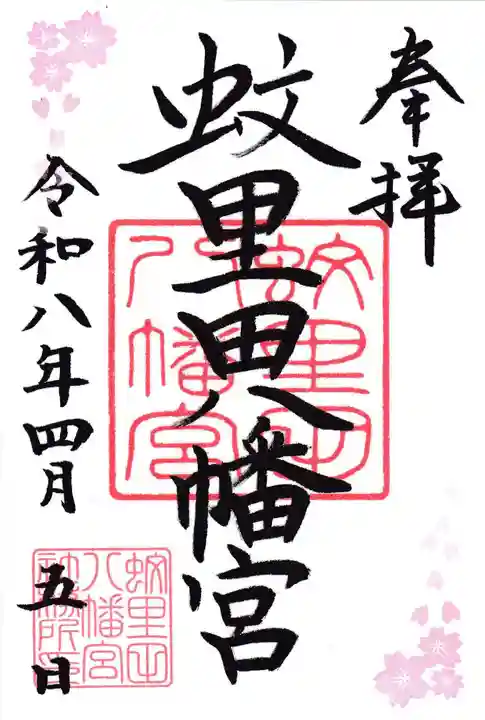 奉拝
蚊里田八幡宮
令和八年四月五日
蚊里田
八幡宮
蚊里田
八幡宮
社務所印